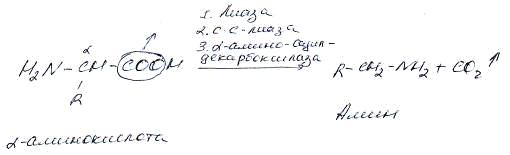 1. Лиаза
2. С-С-лиаза
3. α-амино-ацил-
декарбоксилаза
H₂N-CH-COOH
α
R
R-CH₂-NH₂ + CO₂↑
Амин
α-аминокислота